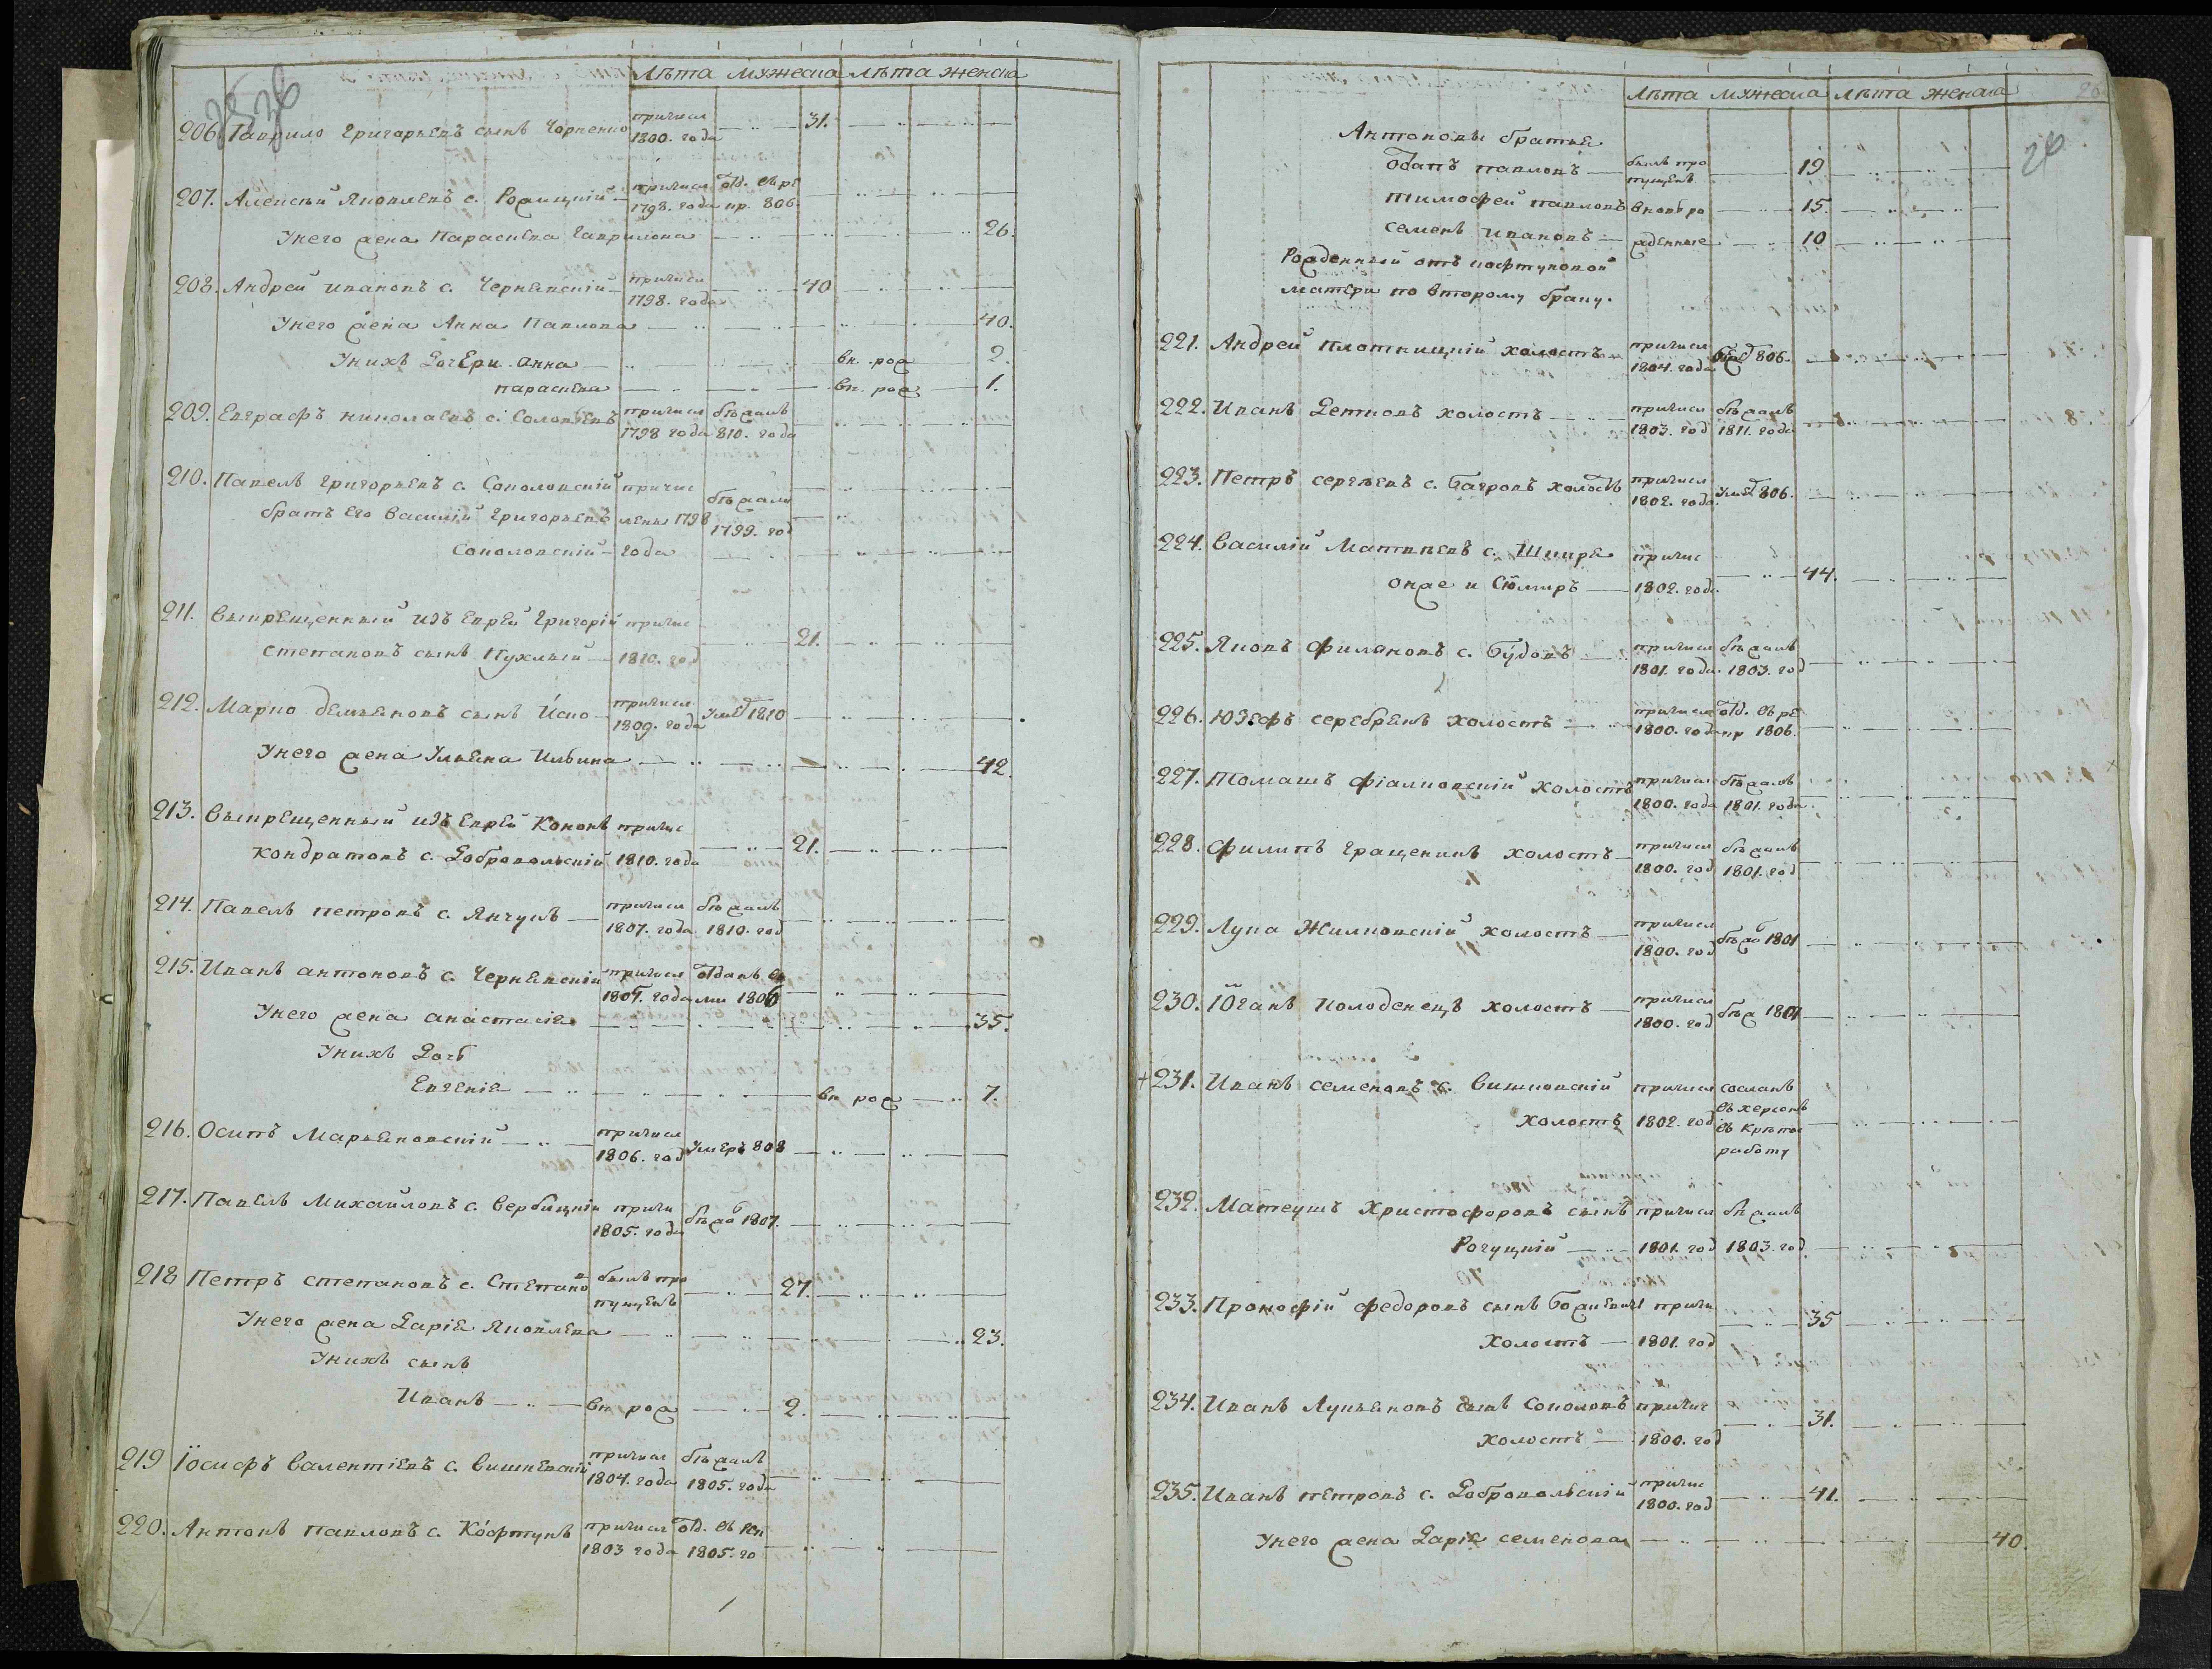 Лѣта мужеска Лѣта женска
206. Гаврило Григорьевъ сынъ Чорненко причисл 1800. года 31.
207. Алексѣй Яковлевъ с. Рожицкій причисл 1798. года отд. въ ре пр. 806.
Унего жена Параскева Гаврилова 26.
208. Андрей Ивановъ с. Чернявскій причисл 1798. года 40
Унего жена Анна Павлова 40.
Унихъ дочери Анна вн. рож 2.
Параскева вн. рож 1.
209. Евграфъ Николаевъ с. Соловьевъ причисл 1798 года бѣжалъ 810. года
210. Павелъ Григорьевъ с. Соколовскій причис
братъ его Василій Григорьевъ лены 1798 бѣжали 1799. год
Соколовскій года
211. Выкрещенный изъ еврей Григорій причис
Степановъ сынъ Пухлый 1810. год 21.
212. Марко Демьяновъ сынъ Иско причисл 1809. года умер 1810
Унего жена Ульяна Ильина 42.
213. Выкрещенный изъ еврей Кононъ причис
Кондратовъ с. Добровольскій 1810. года 21.
214. Павелъ Петровъ с. Янчукъ причисл 1807. года бѣжалъ 1810. год
215. Иванъ Антоновъ с. Чернявскій причисл года отданъ 1806
Унего жена Анастасія 35.
Унихъ дочь
Евгенія вн рож 7.
216. Осипъ Марьяновскій причисл 1806. год умеръ 808
217. Павелъ Михайловъ с. Вербицкій причи 1805. года бѣжа 1807.
218 Петръ Степановъ с. Степано былъ про пущенъ 27.
Унего жена Дарія Яковлева 23.
Унихъ сынъ
Иванъ вн. рож 2.
219 Іосифъ Валентіевъ с. Вишневскій причисл 1804. года бѣжалъ 1805. года
220. Антонъ Павловъ с. Кофтунъ причисл 1803 года отд. въ рек 1805. го
26
Лѣта мужеска Лѣта женска
Антоновы братья
Павловъ былъ про пущенъ 19
Тимофей Павловъ вновь ро 15.
Семенъ Ивановъ жденные 10
Рожденный отъ кофтуновой
матери по второму браку.
221. Андрей Плотницкій холостъ причисл 1804. года 806.
222. Иванъ Детковъ холостъ причисл 1803. год бѣжалъ 1811. года
223. Петръ Сергѣевъ с. Багровъ холостъ причисл 1802. года умер 806.
224. Василій Матвѣевъ с. Шкире причис
онже и Сюмиръ 1802. года 44.
225. Яковъ Филановъ с. Будовъ причисл 1801. года бѣжалъ 1803. год
226. Юзефъ Серебрянъ холостъ причисл 1800. года отд. въ ре кр 1806.
227. Томашъ Фіалковскій холостъ причисл 1800. года бѣжалъ 1801. года
228. Филипъ Гращенинъ холостъ причисл 1800. год бѣжалъ 1801. год
229. Лука Жилковскій холостъ причисл 1800. год бѣжа 1801
230. Юганъ Колоденецъ холостъ причисл 1800. год бѣж
231. Иванъ Семеновъ с. Вишновскій причисл сосланъ
холостъ 1802. год въ херсонъ въ крѣпос работу
232. Матеушъ Христофоровъ сынъ причисл бѣжалъ
Рогуцкій 1801. год 1803. год
233. Прокофій Федоровъ сынъ причи
холостъ 1801. год 35
234. Иванъ Лукьяновъ сынъ Соколовъ причис
холостъ 1800. год 31.
235. Иванъ Петровъ с. Добровольскій причис 1800. год 41.
Унего жена Дарія Семенова 40.